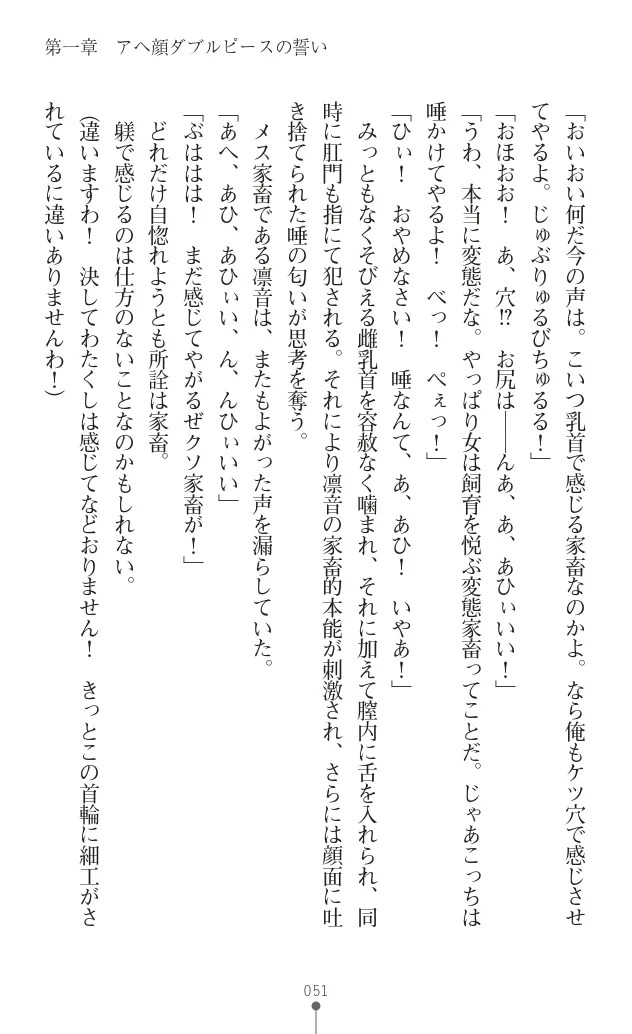 第一章　アヘ顔ダブルピースの誓い
「おいおい何だ今の声は。こいつ乳首で感じる家畜なのかよ。なら俺もケツ穴で感じさせ
てやるよ。じゅぶりゅるびちゅるる！」
「おほおお！　あ、穴!?　お尻は――んあ、あ、あひぃいい！」
「うわ、本当に変態だな。やっぱり女は飼育を悦ぶ変態家畜ってことだ。じゃあこっちは
唾かけてやるよ！　べっ！　ぺぇっ！」
「ひぃ！　おやめなさい！　唾なんて、あ、あひ！　いやあ！」
　みっともなくそびえる雌乳首を容赦なく噛まれ、それに加えて膣内に舌を入れられ、同
時に肛門も指にて犯される。それにより凛音の家畜的本能が刺激され、さらには顔面に吐
き捨てられた唾の匂いが思考を奪う。
　メス家畜である凛音は、またもよがった声を漏らしていた。
「あへ、あひ、あひぃい、ん、んひぃいい」
「ぶははは！　まだ感じてやがるぜクソ家畜が！」
　どれだけ自惚れようとも所詮は家畜。
　躾で感じるのは仕方のないことなのかもしれない。
（違いますわ！　決してわたくしは感じてなどおりません！　きっとこの首輪に細工がさ
れているに違いありませんわ！）
051